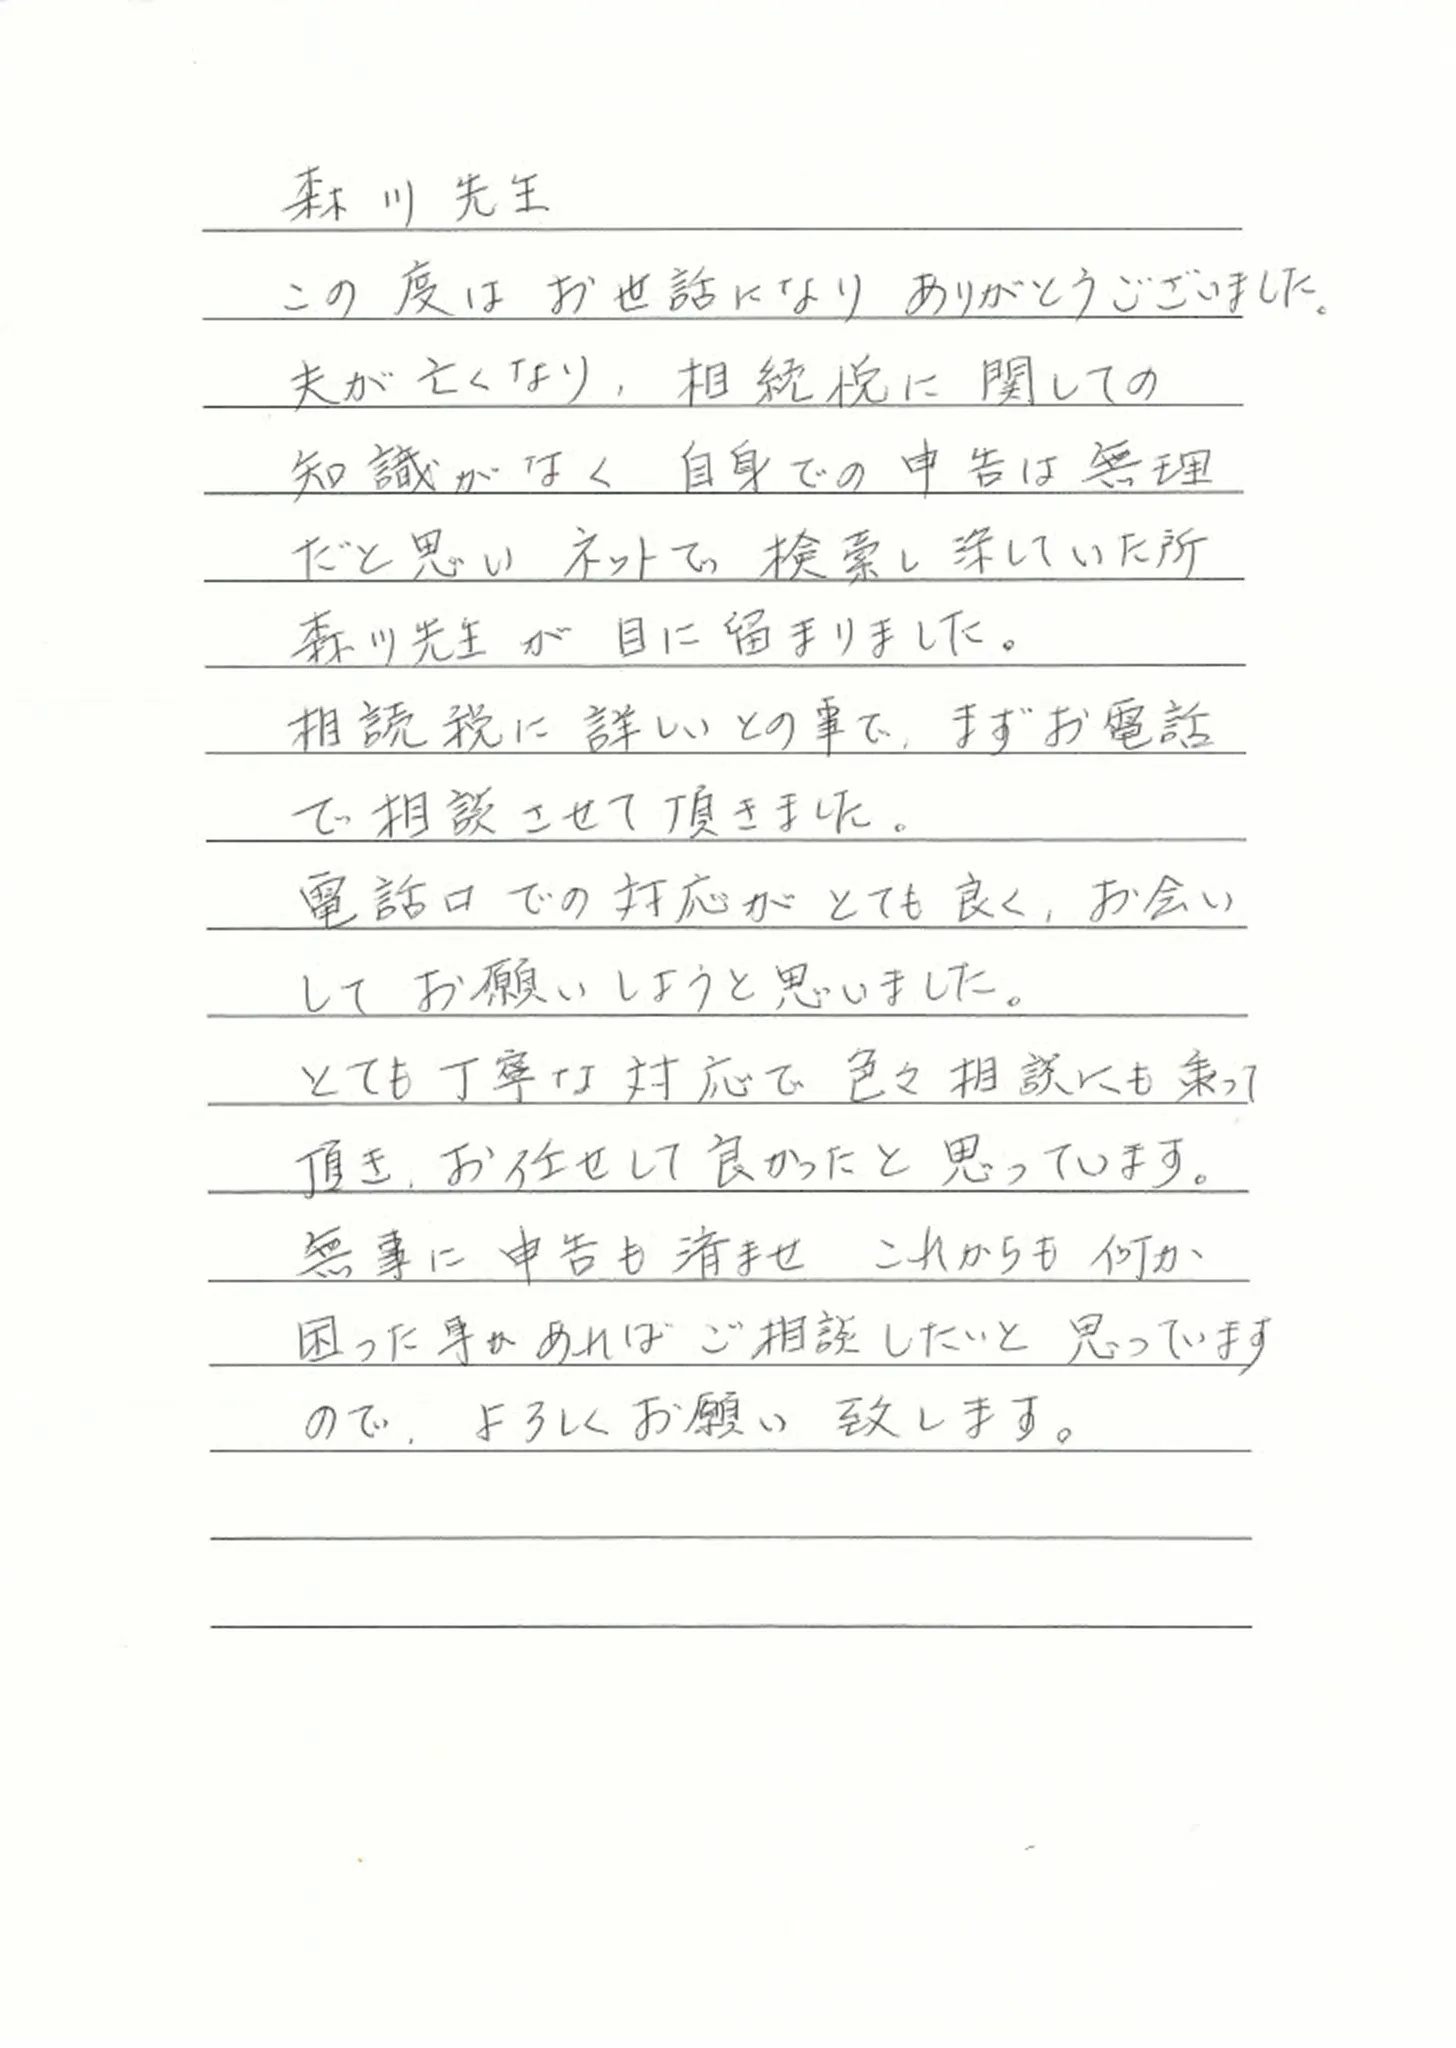 森川先生
この度はお世話になりありがとうございました。
夫が亡くなり、相続税に関しての
知識がなく自身での申告は無理
だと思いネットで検索し深していた所
森川先生が目に留まりました。
相読税に詳しいとの事で、まずお電話
で相談させて頂きました。
電話口での対応がとても良く、お会い
してお願いしようと思いました。
とても丁寧な対応で色々相談にも乗って
頂き、お任せして良かったと思っています。
無事に申告も済ませ これからも何か
困った事があればご相談したいと思っています
ので、よろしくお願い致します。